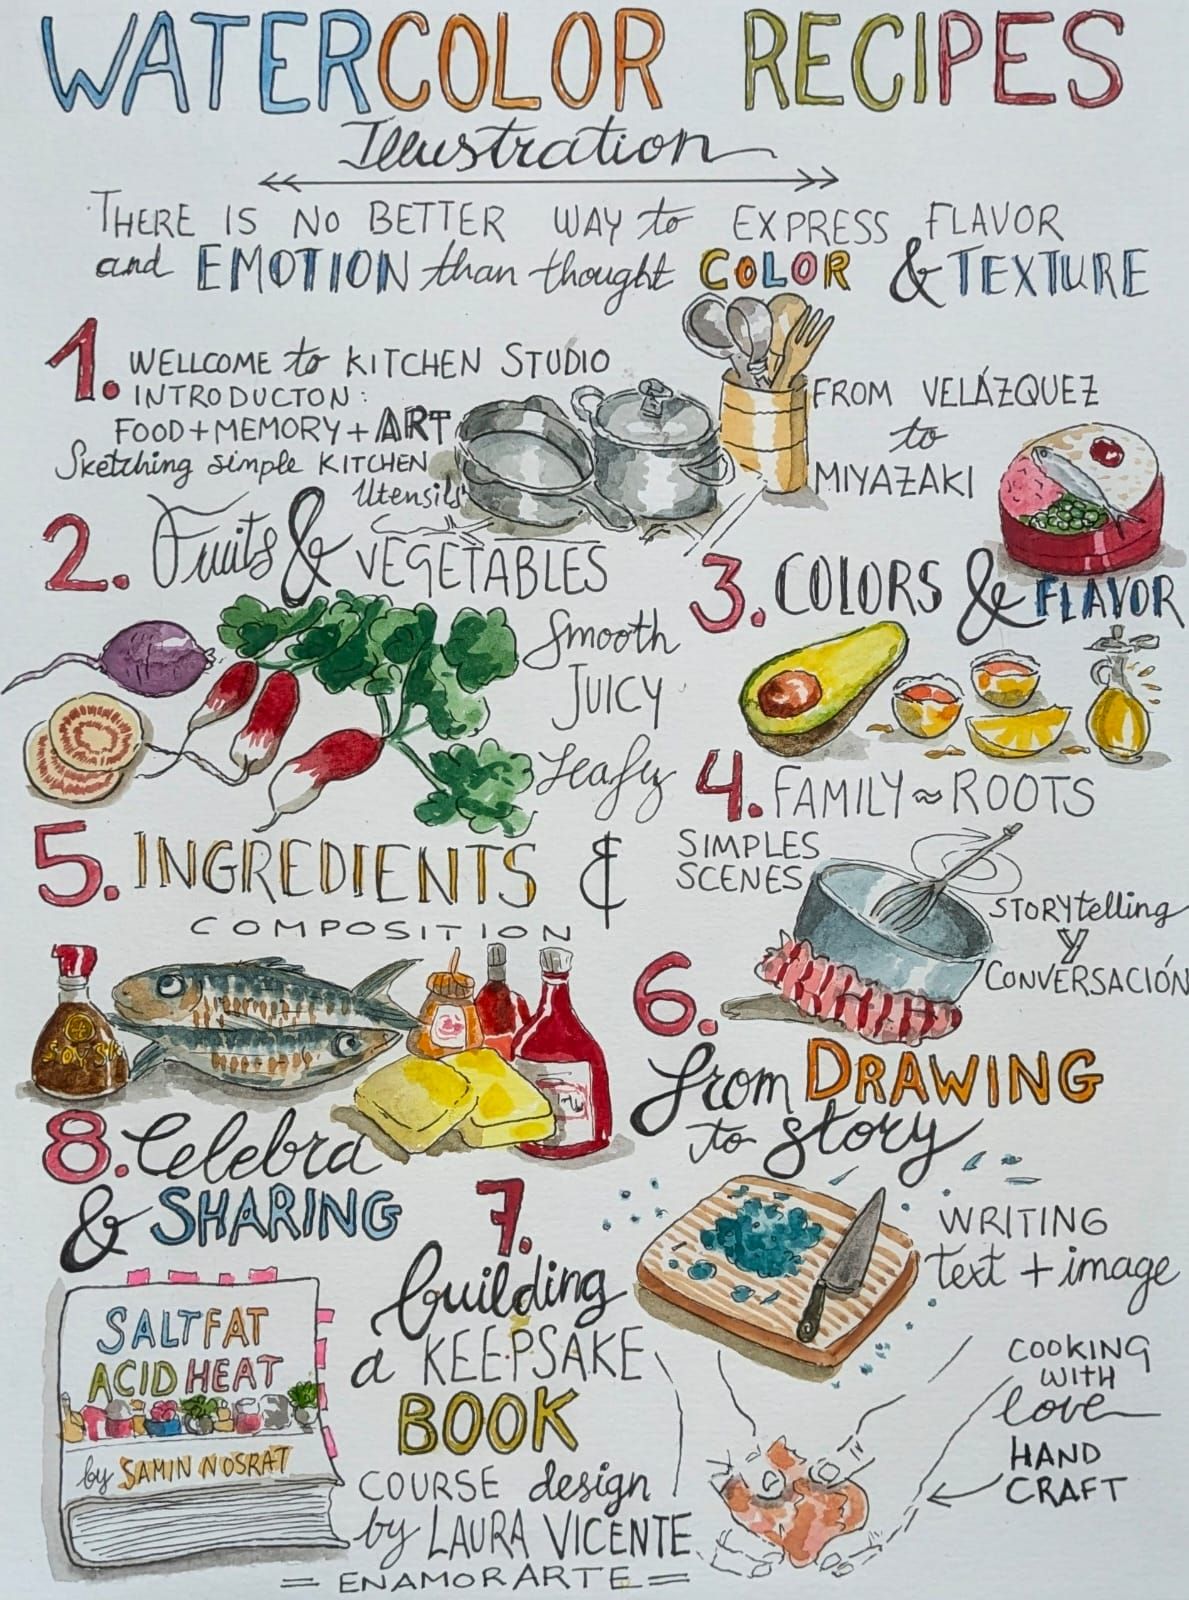 WATERCOLOR RECIPES
Illustration
THERE IS NO BETTER WAY to EXPRESS FLAVOR
and EMOTION than thought COLOR & TEXTURE
1. WELLCOME to KITCHEN STUDIO
INTRODUCTON:
FOOD + MEMORY + ART
Sketching simple KITCHEN
Utensils
FROM VELÁZQUEZ
to
MIYAZAKI
2. Fruits & VEGETABLES
Smooth
JUICY
Leafy
3. COLORS & FLAVOR
4. FAMILY ≈ ROOTS
SIMPLES
SCENES
STORYtelling
Y
CONVERSACIÓN
5. INGREDIENTS &
COMPOSITION
6.
from DRAWING
to story
WRITING
text + image
7.
building
a KEEPSAKE
BOOK
COURSE design
by LAURA VICENTE
= ENAMORARTE =
8. Celebra
& SHARING
SALT FAT
ACID HEAT
by SAMIN NOSRAT
COOKING
WITH
love
HAND
CRAFT